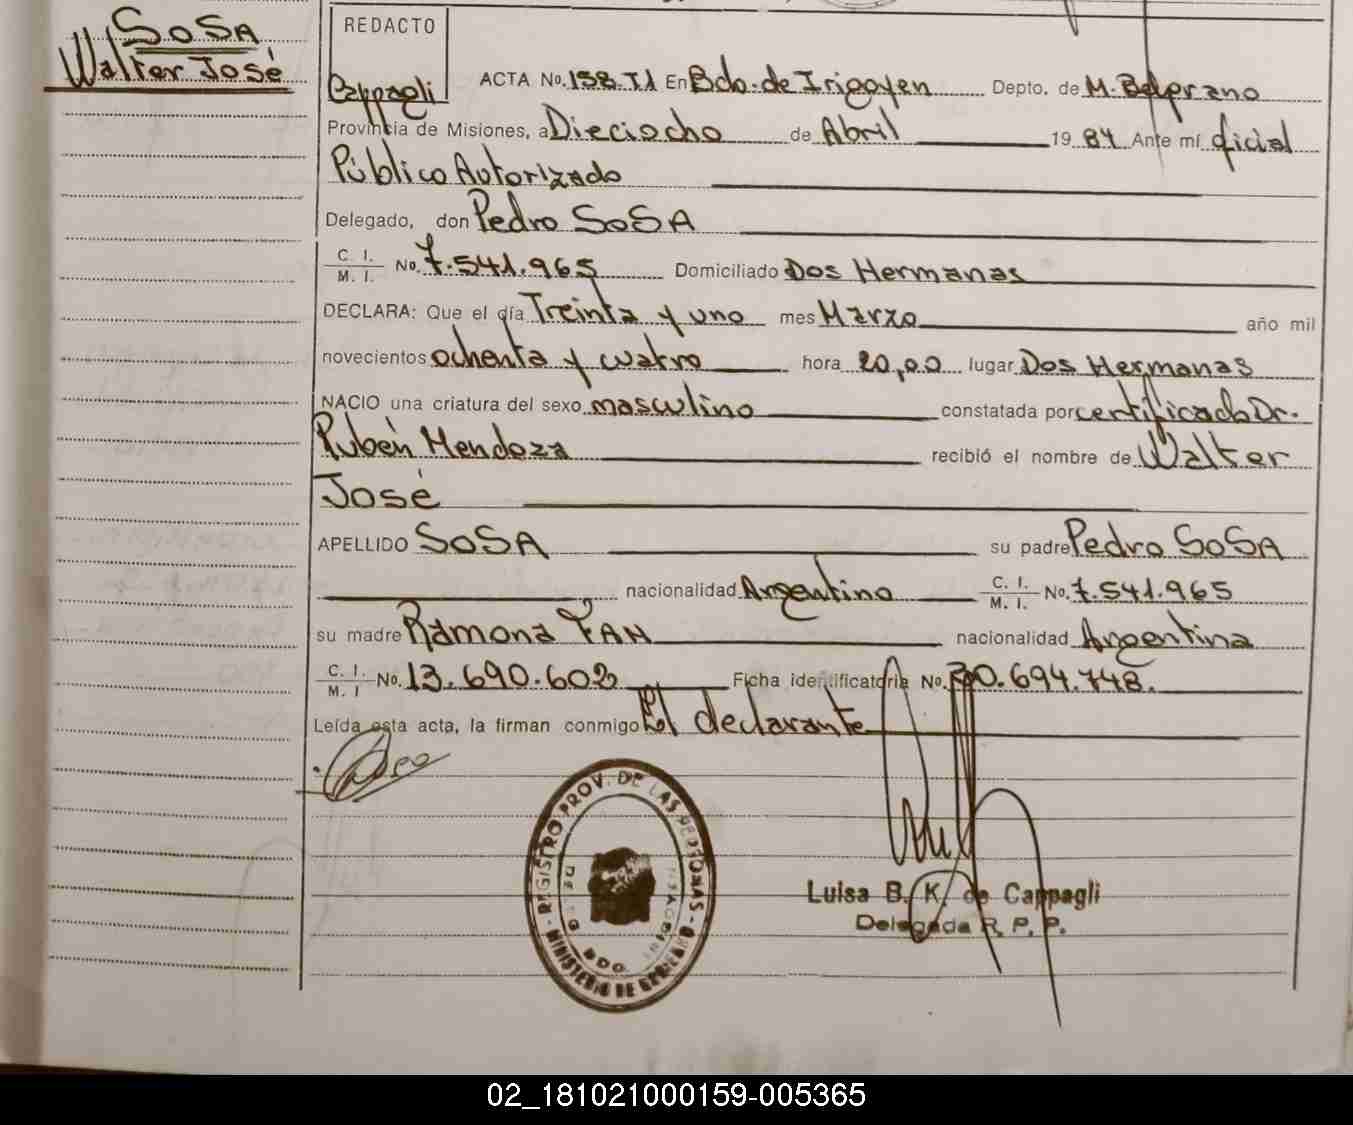 SOSA
Walter José
REDACTO
Cappagli
ACTA No. 158.T1 En Bdo. de Irigoyen Depto. de M. Belgrano
Provincia de Misiones, a Dieciocho de Abril 1984 Ante mí oficial
Público Autorizado
Delegado, don Pedro SOSA
C. I. M. I. No. 7.541.965 Domiciliado Dos Hermanas
DECLARA: Que el día Treinta y uno mes Marzo año mil
novecientos ochenta y cuatro hora 20,00 lugar Dos Hermanas
NACIO una criatura del sexo masculino constatada por certificado Dr.
Rubén Mendoza recibió el nombre de Walter
José
APELLIDO SOSA su padre Pedro SOSA
nacionalidad Argentino C. I. M. I. No. 7.541.965
su madre Ramona FAN nacionalidad Argentina
C. I. M. I No. 13.690.602 Ficha identificatoria No. 30.694.748.
Leída esta acta, la firman conmigo El declarante
REGISTRO PROV. DE LAS PERSONAS - MINISTERIO DE GOBIERNO -
DELEG BDO.
Luisa B. K. de Cappagli
Delegada R. P. P.
02_181021000159-005365